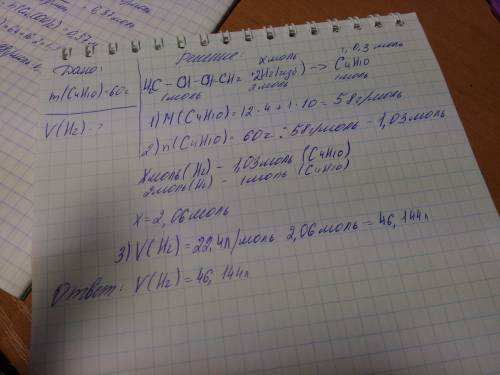 Дано:
m(C4H10)=60г
V(H2)-?
Решение:
x моль
1,03 моль
H2C - CH - CH - CH2 + 2H2(изб) -> C4H10
1 моль 2 моль 1 моль
1) M(C4H10) = 12·4 + 1·10 = 58г/моль
2) n(C4H10) = 60г : 58г/моль = 1,03моль
Xмоль(H2) - 1,03моль (C4H10)
2моль(H2) - 1моль (C4H10)
X = 2,06моль
3) V(H2) = 22,4л/моль 2,06моль = 46,144л
Ответ: V(H2) = 46,144л